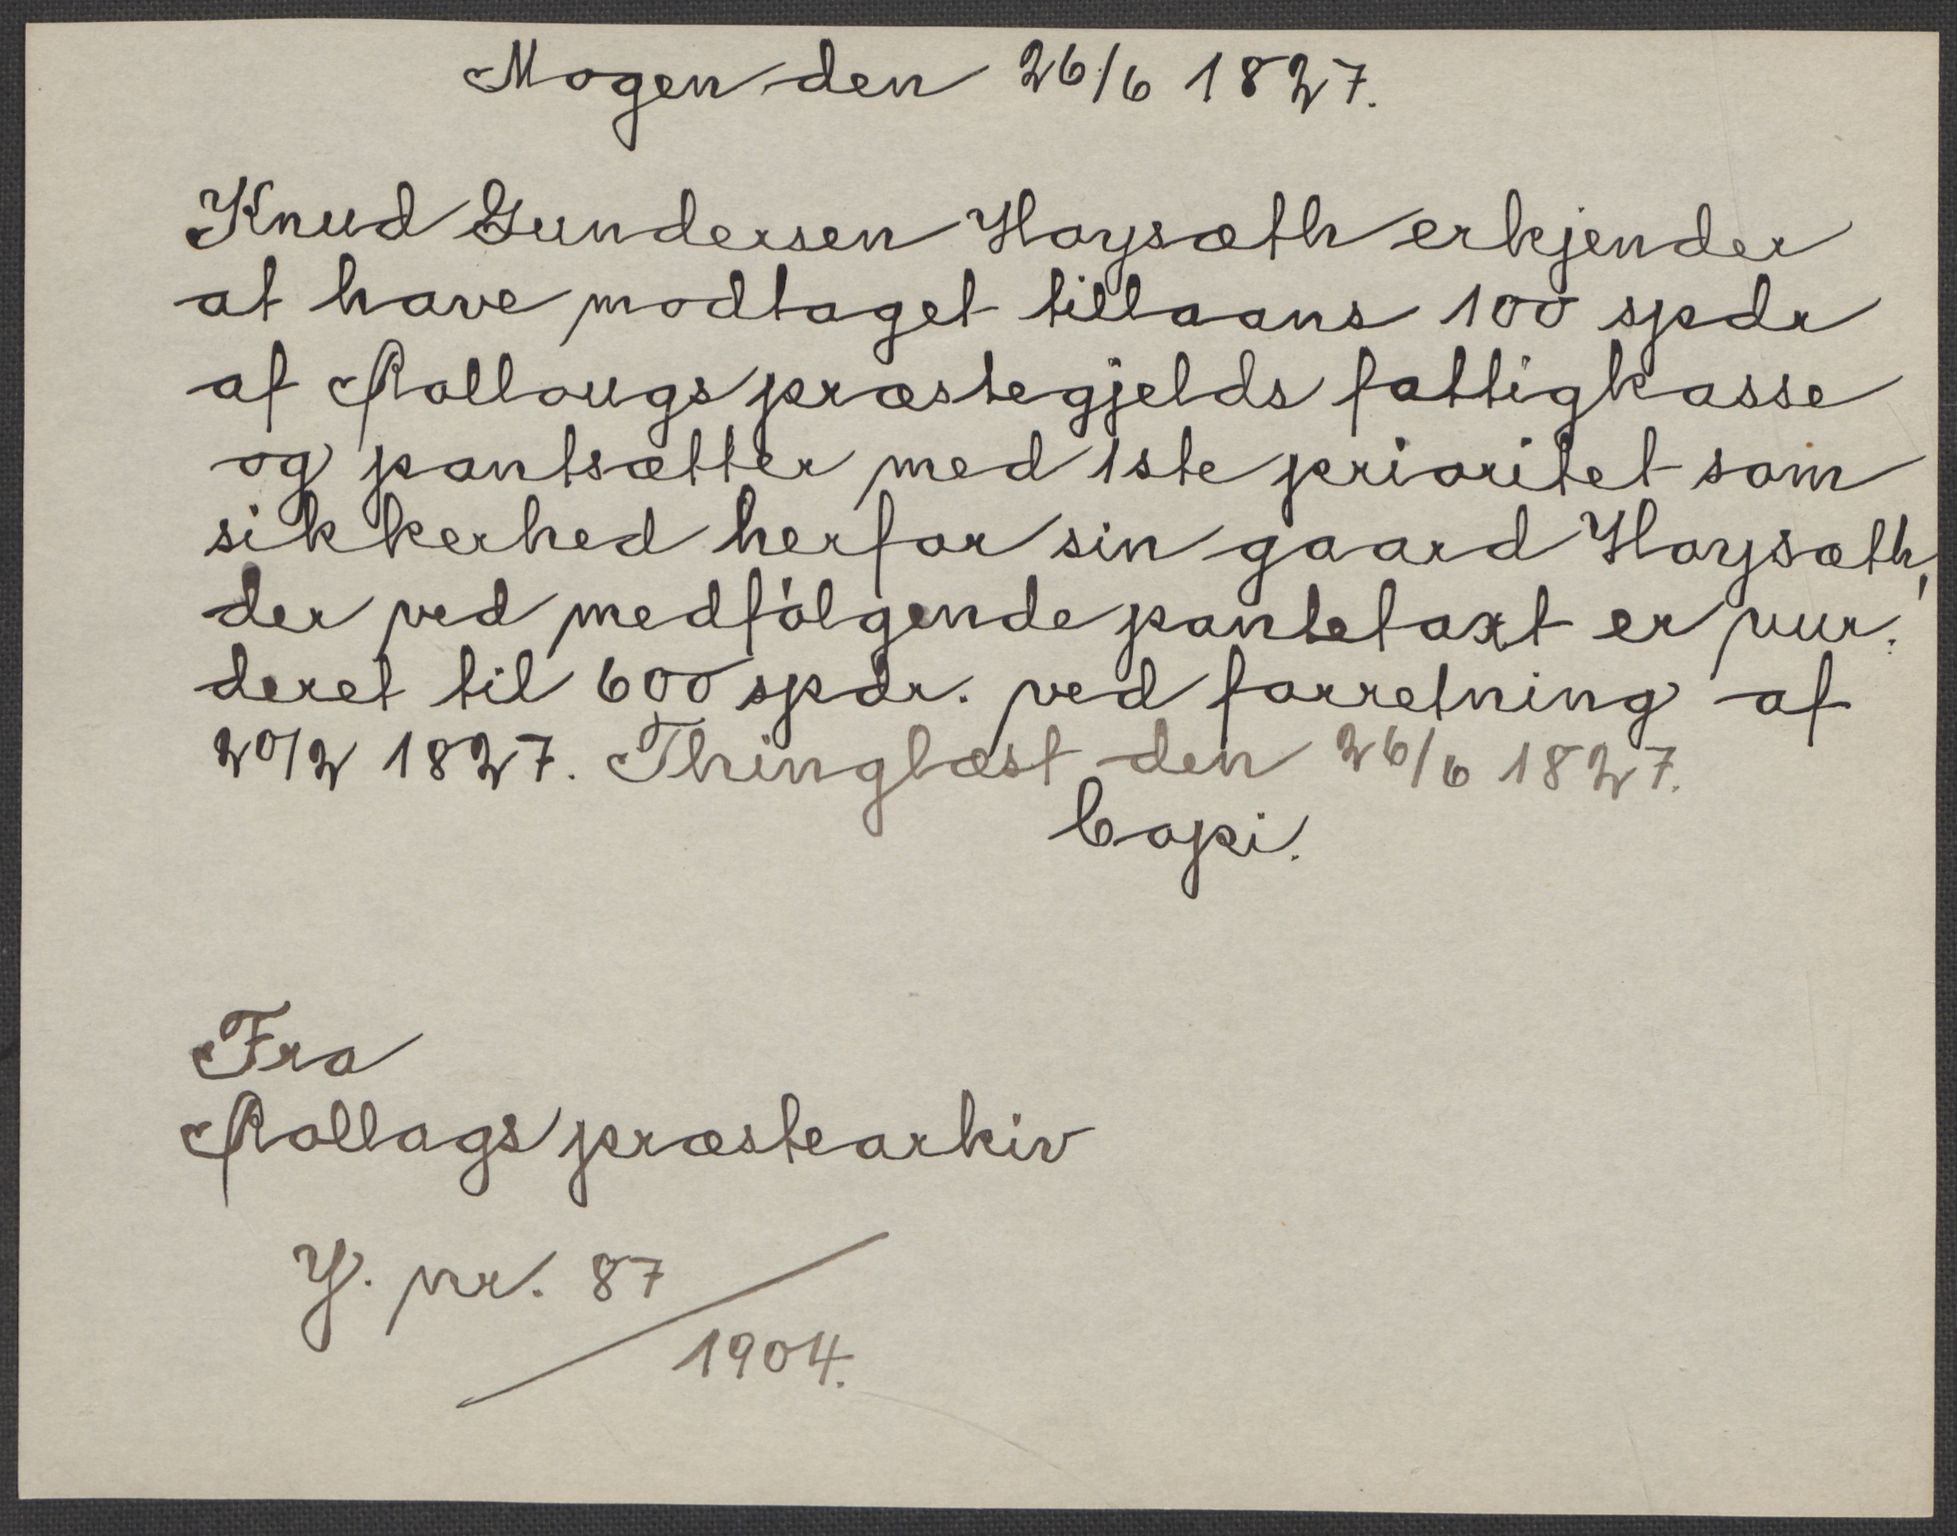 Mogen den 26/6 1827.
Knud Gundersen Høysæth erkjender
at have modtaget tillaans 100 spdr
af Rollougs præstegjelds fattigkasse
og pantsætter med 1ste prioritet som
sikkerhed herfor sin gaard Høysæth,
der ved medfølgende pantetaxt er vur-
deret til 600 spdr. ved forretning af
20/2 1827. Thinglæst den 26/6 1827.
Copi.
Fra
Rollags præstearkiv
J. nr. 87/1904.